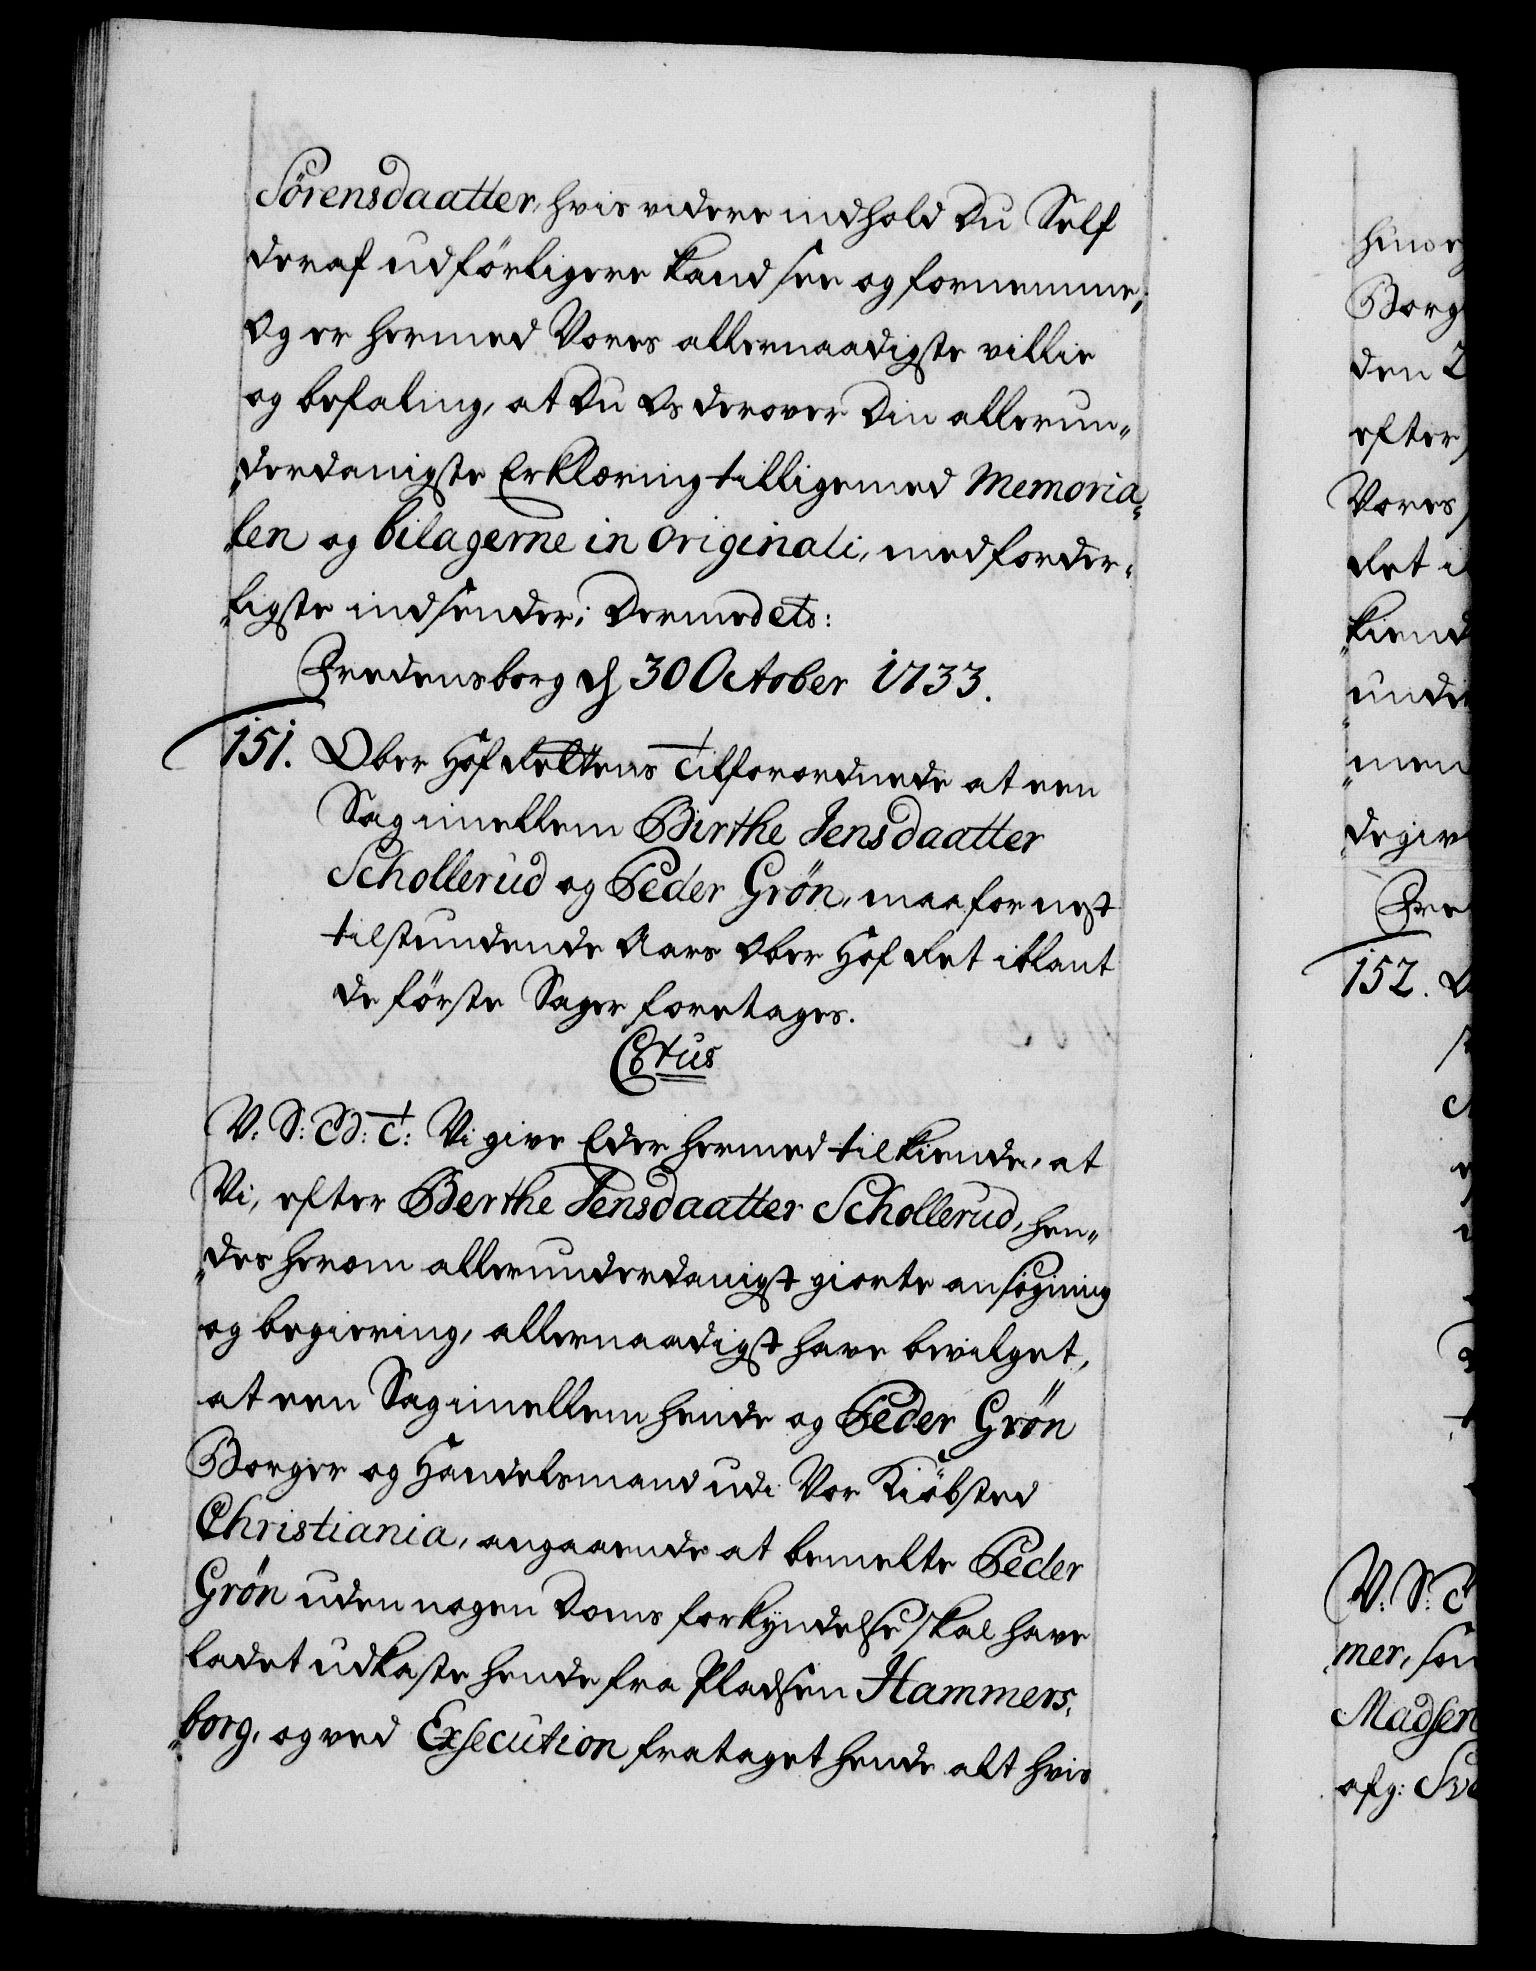 Sörensdaatter, hvis videre indhold Du Self
deraf udförligere kand see og fornemme;
Og er hermed Vores allernaadigste villie
og befaling, at Du Os derover Din allerun„
„derdanigste Erklæring tilligemed Memoria„
„len og bilagerne in originali, med forder„
„ligste indsender; Dermed etc:
Fredensborg d 30 October 1733.
151. Ober Hof Rettens Tilforordnede at een
Sag imellem Birthe Jensdaatter
Schollerud og Peder Grön, maa for nest
tilstundende Aars Ober Hof Ret iblant
de förste Sager foretages.
C6tus
V: S: G: T: Vi give Eder hermed tilkiende, at
Vi, efter Berthe Jensdaatter Schollerud, hen„
„des herom allerunderdanigst giorte ansögning
og begiering, allernaadigst have bevilget,
at een Sag imellem hende og Peder Grön
Borger og Handelsmand udi Vor Kiöbsted
Christiania, angaaende at bemelte Peder
Grön uden nogen Doms forkyndelse skal have
ladet udkaste hende fra Pladsen Hammers„
„borg, og ved Exsecution frataget hende alt hvis
Borg
den 2
efter
Vores
Ret i
152.
V: S:
mer, som
Madsen
afg: Sv